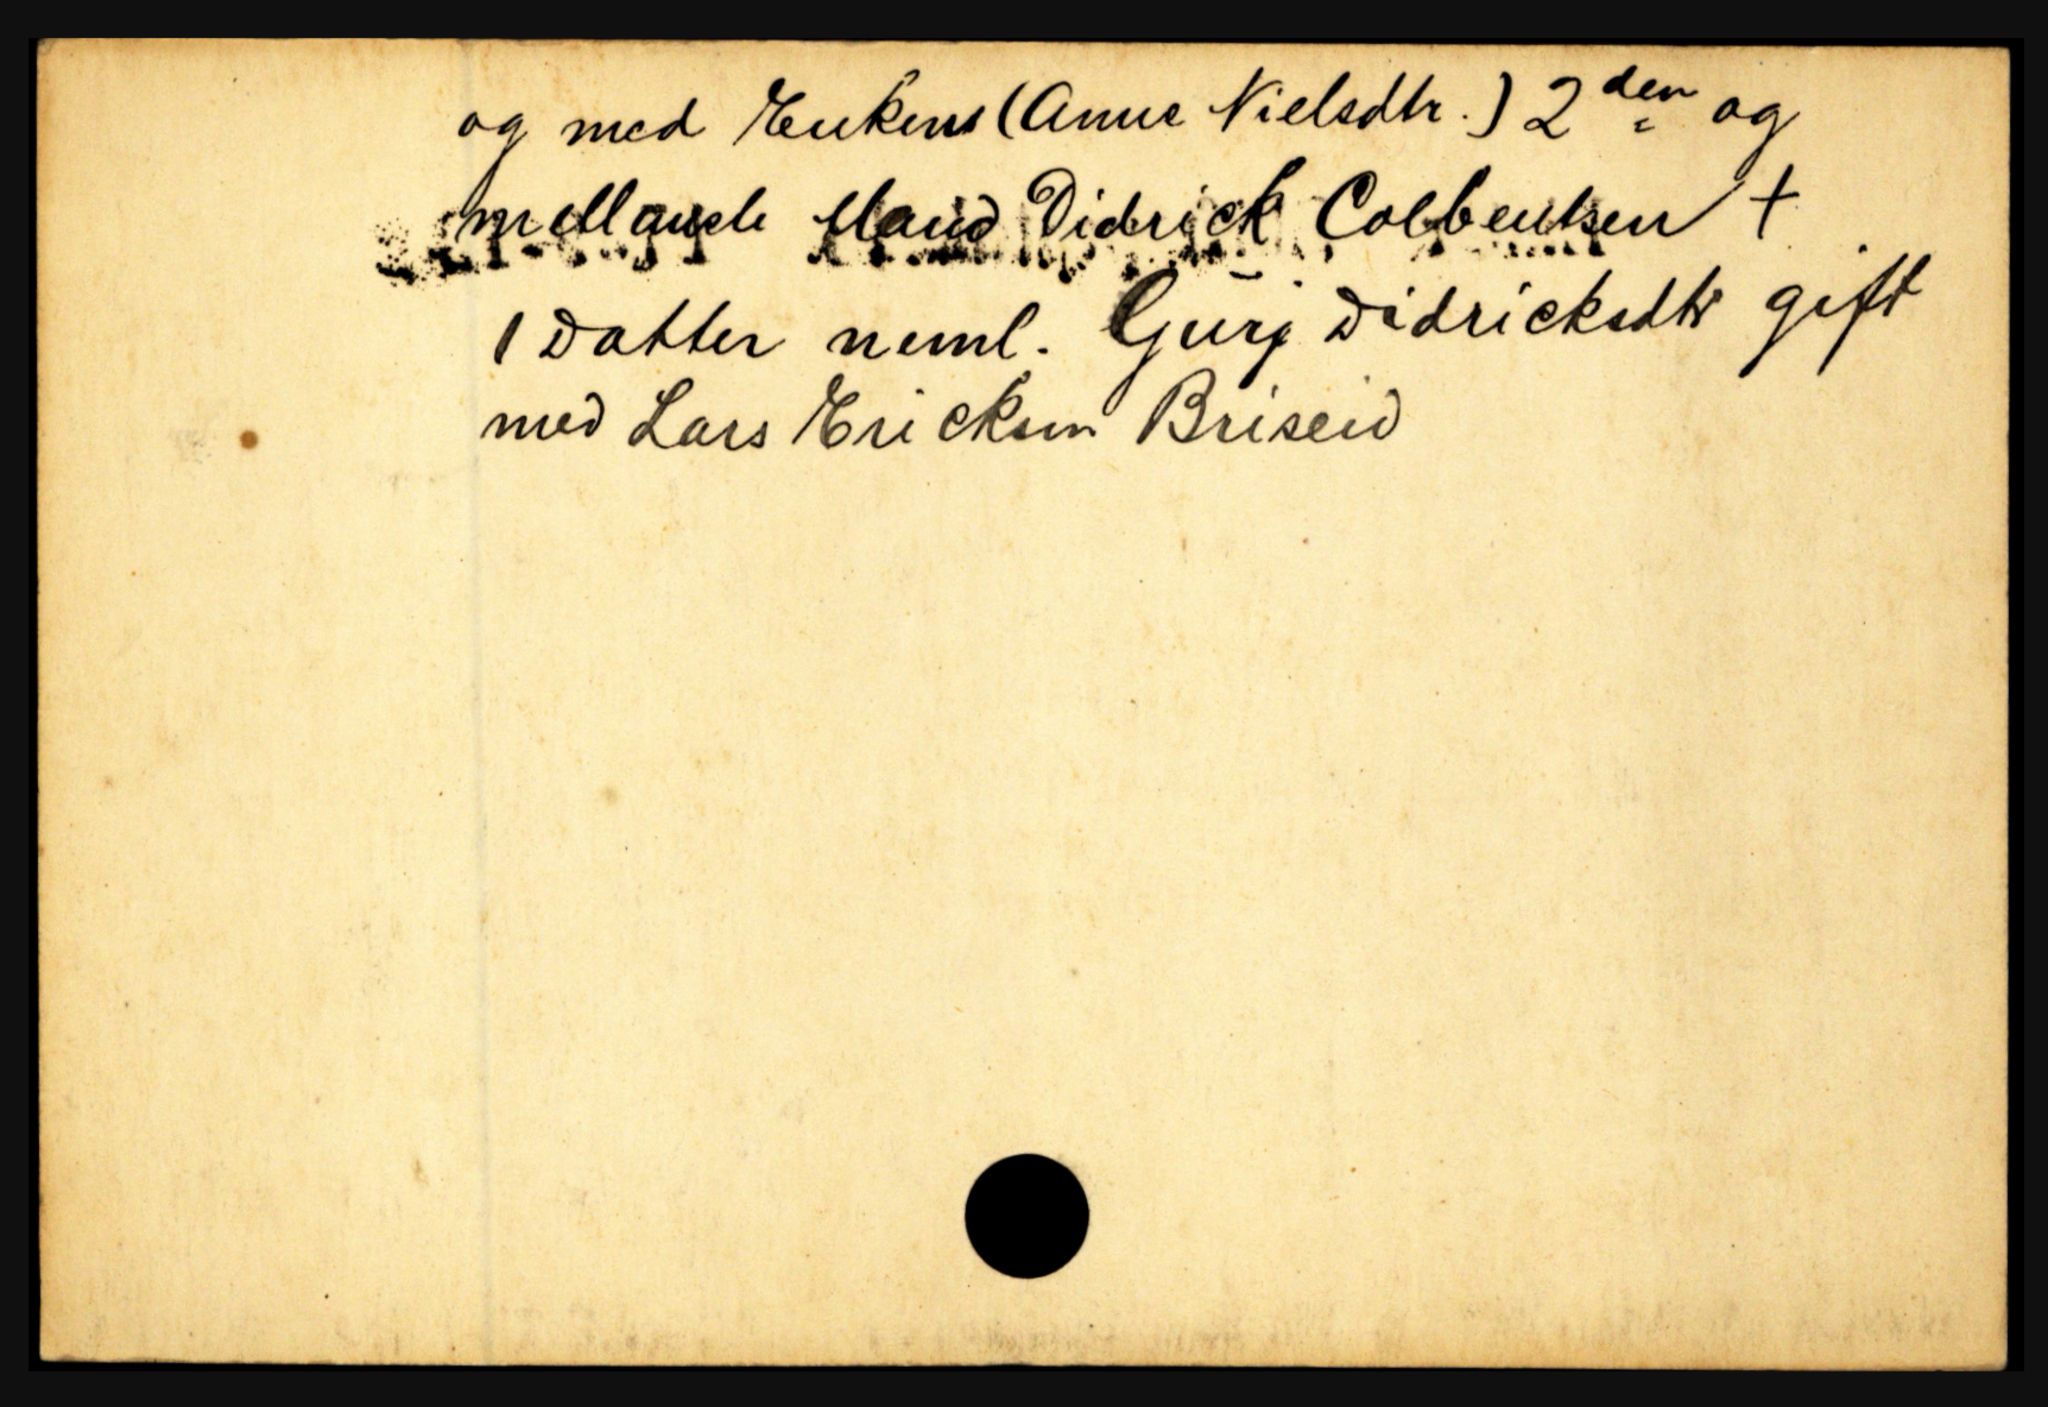 og med Enkens (Anne Nielsdtr.) 2den og
mellemste Mand Didrick Colbentsen †
1 Datter neml. Gurj Didricksdtr gift
med Lars Ericksen Briseid